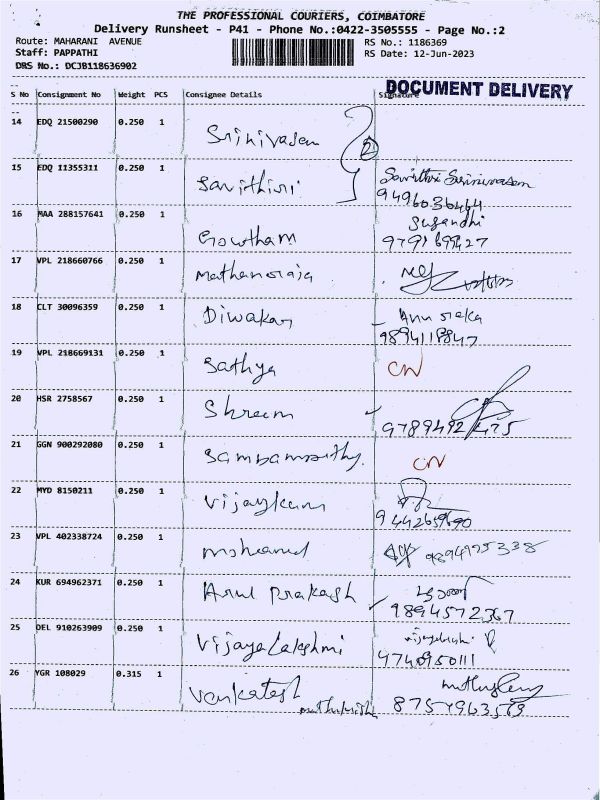 THE PROFESSIONAL COURIERS, COIMBATORE
Delivery Runsheet - P41 - Phone No.:0422-3505555 - Page No.:2
Route: MAHARANI AVENUE
RS No.: 1186369
Staff: PAPPATHI
RS Date: 12-Jun-2023
DRS No.: DCJB118636902
DOCUMENT DELIVERY
S No Consignment No Weight PCS Consignee Details Signature
14 EDQ 21500290 0.250 1 Srinivasan 2
15 EDQ 11355311 0.250 1 Savithiri Savithri Srinivasan
9496036464
16 MAA 288157641 0.250 1 Gowtham Sugandhi
9791699427
17 VPL 218660766 0.250 1 Mathanoraja
18 CLT 30096359 0.250 1 Diwakar
9894118847
19 VPL 218669131 0.250 1 Sathya CN
20 HSR 2758567 0.250 1 Shreem
9789492475
21 GGN 900292080 0.250 1 CN
22 MYD 8150211 0.250 1
9442659690
23 VPL 402338724 0.250 1 mohamed
24 KUR 694962371 0.250 1 Arul prakash
9894572367
25 DEL 910263909 0.250 1 Vijayalakshmi
4740950111
26 YGR 108029 0.315 1 Venkatesh